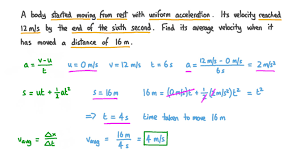 A body started moving from rest with uniform acceleration. Its velocity reached
12 m/s by the end of the sixth second. Find its average velocity when it
has moved a distance of 16 m.
a = (v-u)/t u = 0 m/s v = 12 m/s t = 6 s a = (12 m/s - 0 m/s)/(6 s) = 2 m/s²
s = ut + ½at² s = 16 m 16 m = (0 m/s)t + ½(2 m/s²)t² = t²
⇒ t = 4 s time taken to move 16 m
v_avg = Δx/Δt v_avg = 16 m/4 s = 4 m/s